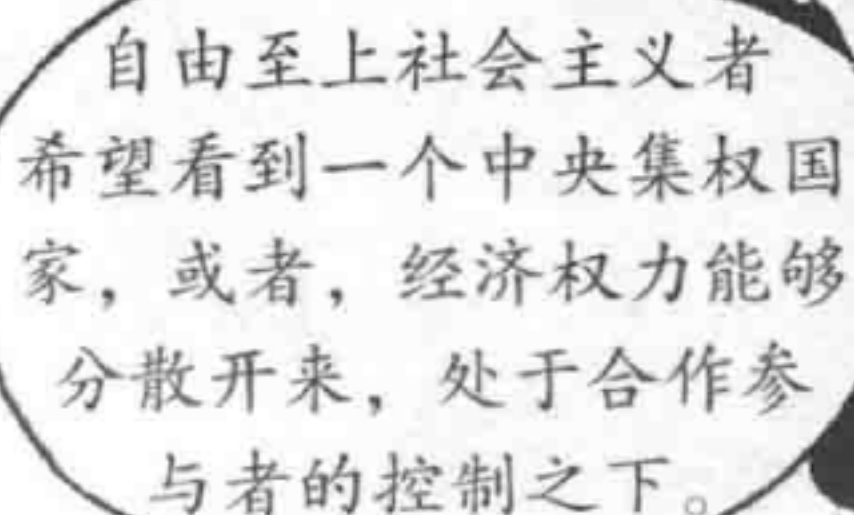 自由至上社会主义者
希望看到一个中央集权国
家，或者，经济权力能够
分散开来，处于合作参
与者的控制之下。